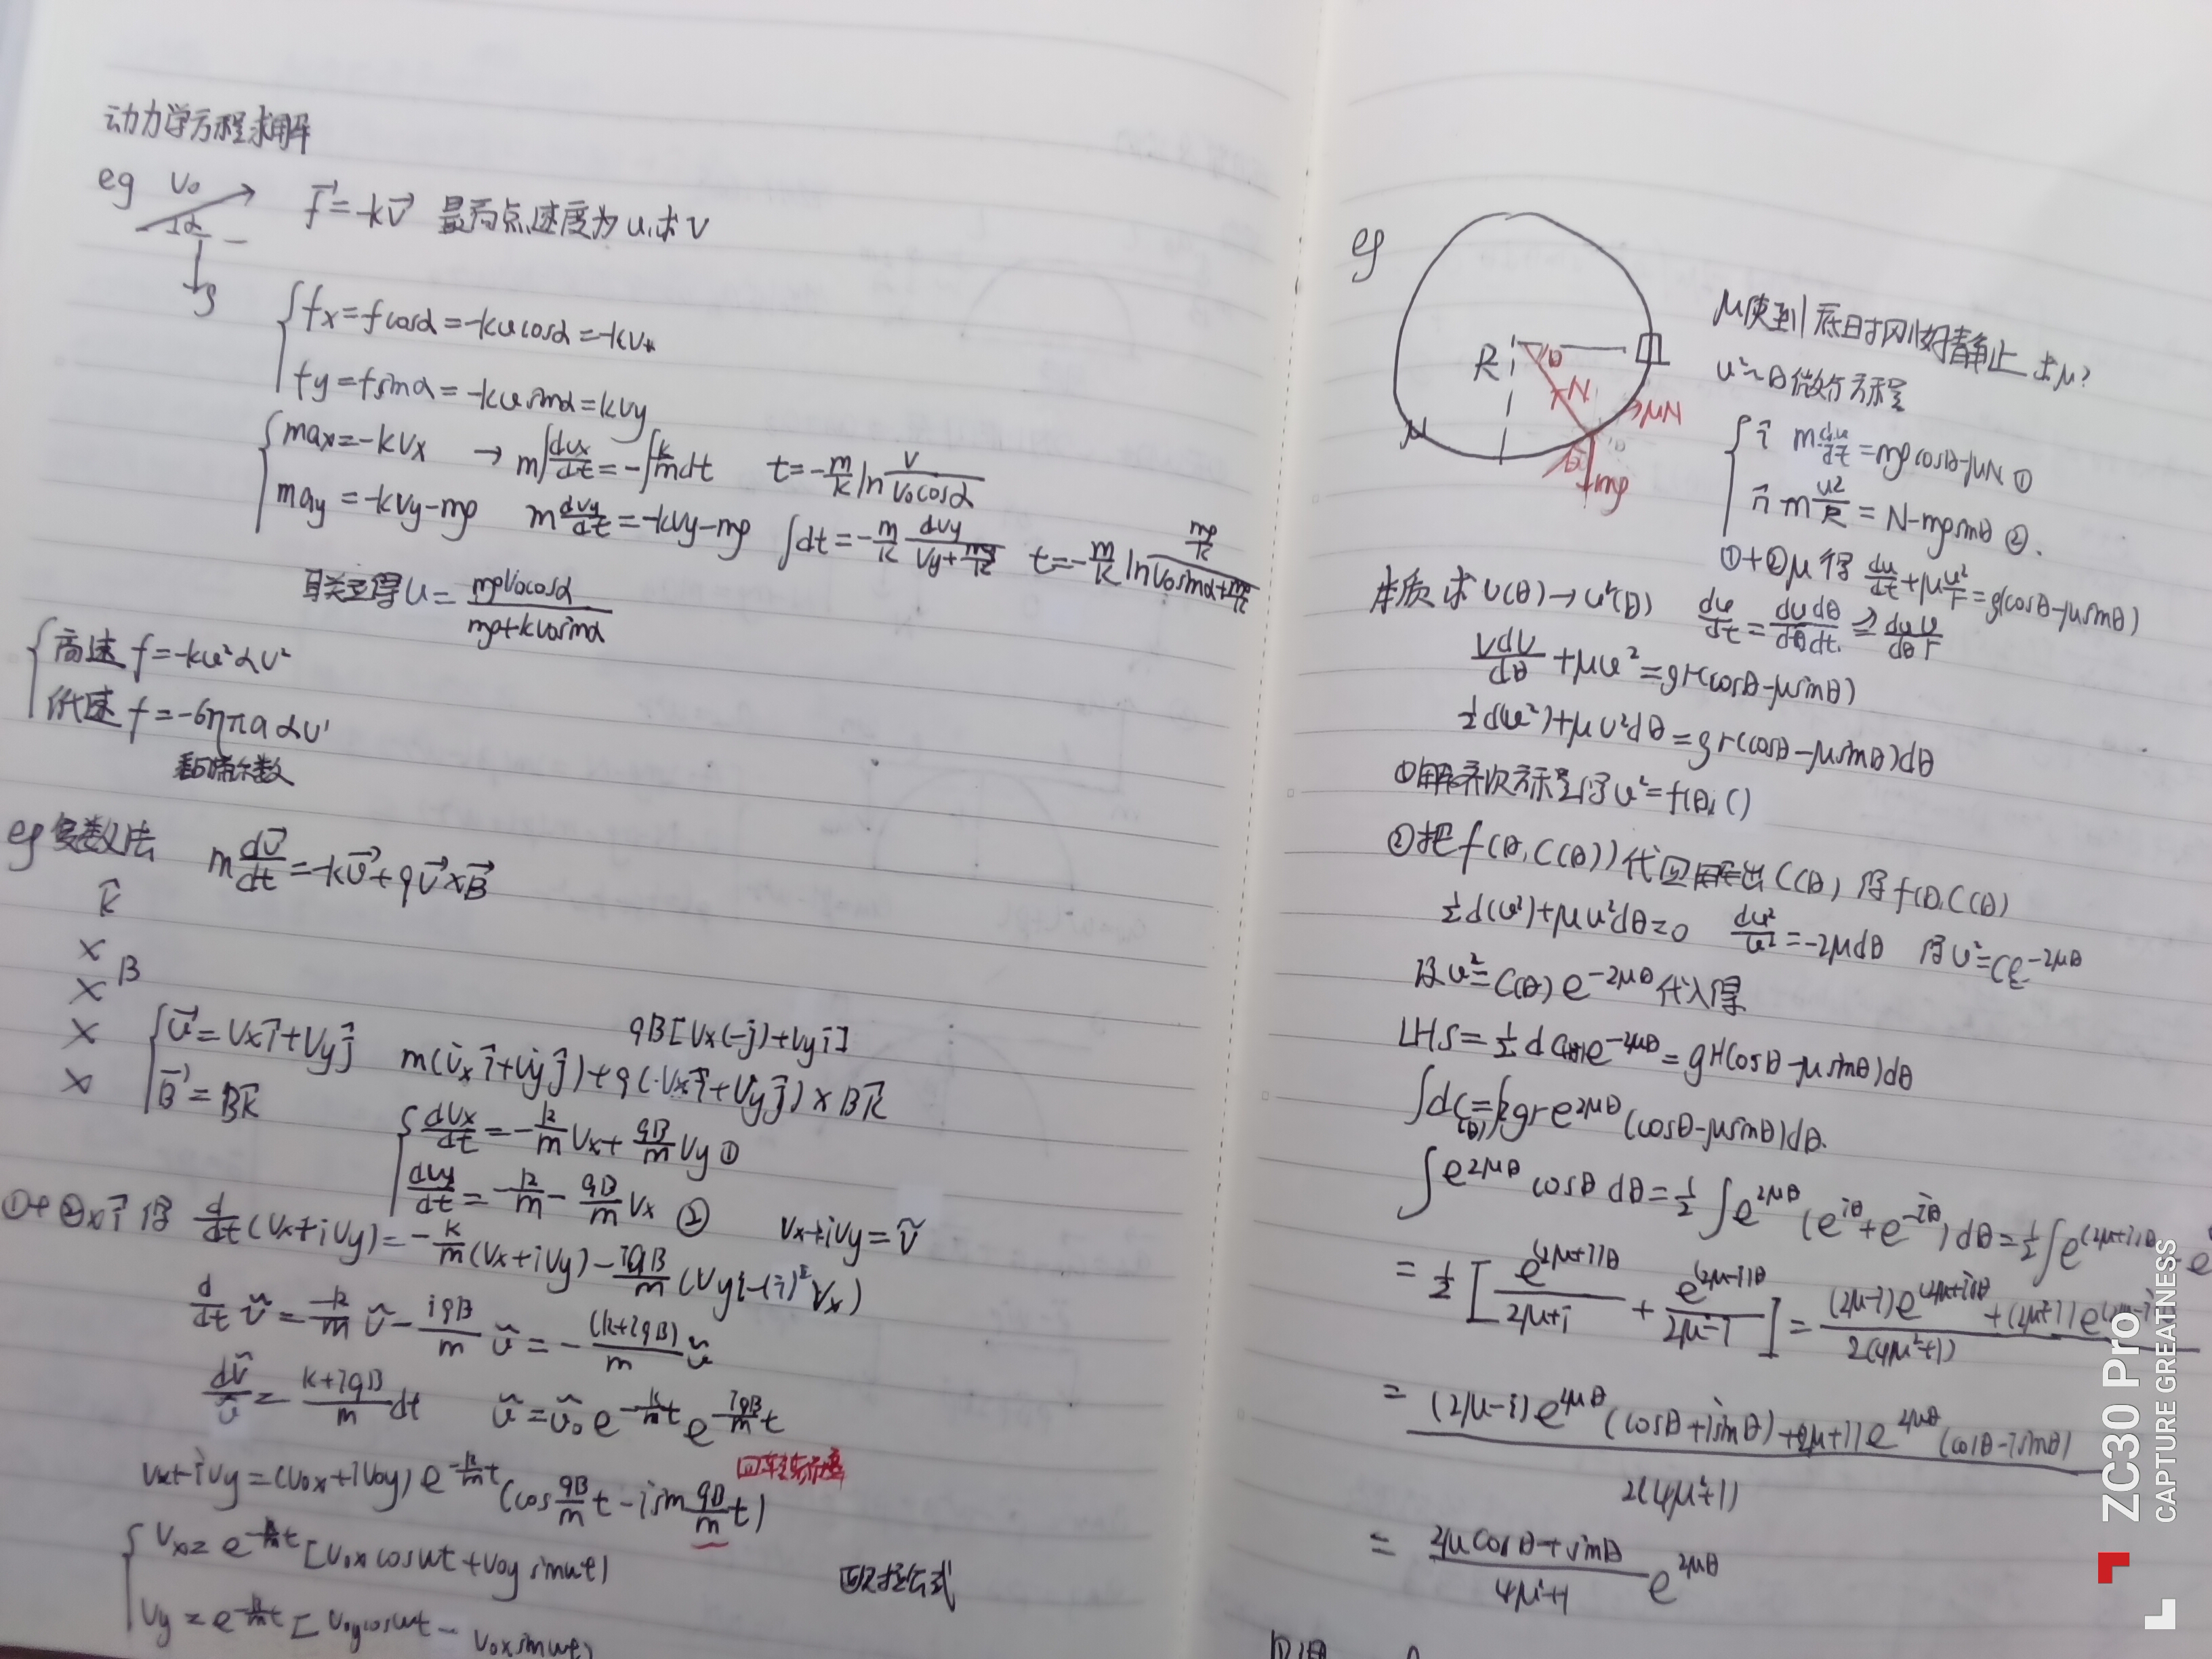 动力学方程求解
eg v₀ α g
f⃗=-kv⃗ 最高点速度为u,求v
{ fx=fcosα=-kvcosα=-kvₓ
fy=fsinα=-kvsinα=kvy
{ max=-kvx → m∫dvx/dt=-∫k/m dt t=-m/k ln v/(v₀cosα)
may=-kvy-mg m dvy/dt=-kvy-mg ∫dt=-m/k dvy/(vy+mg/k) t=-m/k ln (mg/k)/(v₀sinα+mg/k)
联立得u=mgv₀cosα/(mg+kv₀sinα)
{ 高速 f=-kv²αv²
低速 f=-6ηπaαv¹
黏滞系数
eg 复数法 m dv⃗/dt=-kv⃗+qv⃗×B⃗
k⃗
×
× B
×
×
qB[vx(-j)+vyi]
{ v⃗=vxi⃗+vyj⃗ m(v̇xi⃗+v̇yj⃗)+q(vxi⃗+vyj⃗)×Bk⃗
B⃗=Bk⃗
{ dvx/dt=-k/m vx+qB/m vy ①
dvy/dt=-k/m-qB/m vx ② vx+ivy=ṽ
①+②×i 得 d/dt(vx+ivy)=-k/m(vx+ivy)-iqB/m(vyi-(i)²vx)
d/dt ṽ=-k/m ṽ-iqB/m ṽ=-(k+iqB)/m ṽ
dṽ/ṽ=(k+iqB)/m dt ṽ=ṽ₀e^(-k/m t)e^(-iqB/m t)
回转频率
vx+ivy=(v₀x+iv₀y)e^(-k/m t)(cos qB/m t-isin qB/m t)
{ vx=e^(-k/m t)[v₀xcosωt+v₀ysinωt)
欧拉公式
vy=e^(-k/m t)[v₀ycosωt-v₀xsinωt)
eg
R θ N μN μ θ mg
μ使到底时刚好静止 求μ?
v²~θ微分方程
{ i⃗ m dv/dt=mgcosθ-μN ①
n⃗ m v²/R=N-mgsinθ ②.
①+②μ 得 dv/dt+μ v²/r=g(cosθ-μsinθ)
本质求v(θ)→v²(θ) dv/dt=dvdθ/dθdt. ⇒ dv v/dθ r
vdv/dθ+μv²=gr(cosθ-μsinθ)
½d(v²)+μv²dθ=gr(cosθ-μsinθ)dθ
①解齐次方程得v²=f(θ,C)
②把f(θ,C(θ))代回解出C(θ)得f(θ,C(θ)
½d(v²)+μv²dθ=0 dv²/v²=-2μdθ 得v²=Ce^(-2μθ)
设v²=C(θ)e^(-2μθ)代入得
LHS=½dC(θ)e^(-2μθ)=gr(cosθ-μsinθ)dθ
∫dC(θ)=∫2gre^(2μθ)(cosθ-μsinθ)dθ.
∫e^(2μθ)cosθdθ=½∫e^(2μθ)(e^(iθ)+e^(-iθ))dθ=½∫e^((2μ+i)θ) e
=½[e^((2μ+i)θ)/(2μ+i)+e^((2μ-i)θ)/(2μ-i)]=((2μ-i)e^((2μ+i)θ)+(2μ+i)e^((2μ-i)θ))/2(4μ²+1)
=((2μ-i)e^(2μθ)(cosθ+isinθ)+(2μ+i)e^(2μθ)(cosθ-isinθ))/2(4μ²+1)
=(2μcosθ+sinθ)/(4μ²+1) e^(2μθ)
ZC30 Pro
CAPTURE GREATNESS